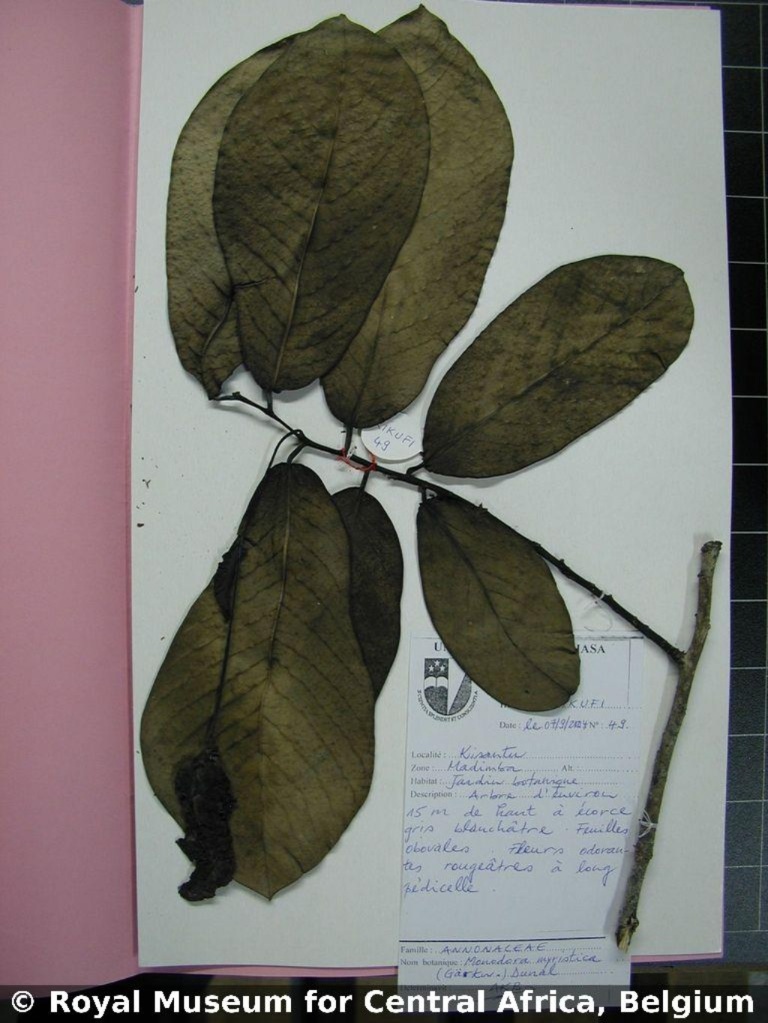 IKUFI
49
U
HASA
KUFI
Date : le 07/9/2024 N° : 49.
Localité : Kisantu
Zone : Madimba Alt :
Habitat : Jardin botanique
Description : Arbre d'Environ
15 m de haut à écorce
gris blanchâtre. Feuilles
obovales. Fleurs odoran-
tes rougeâtres à long
pédicelle.
Famille : ANNONACEAE
Nom botanique : Monodora myristica
(Gärtn.) Dunal
© Royal Museum for Central Africa, Belgium